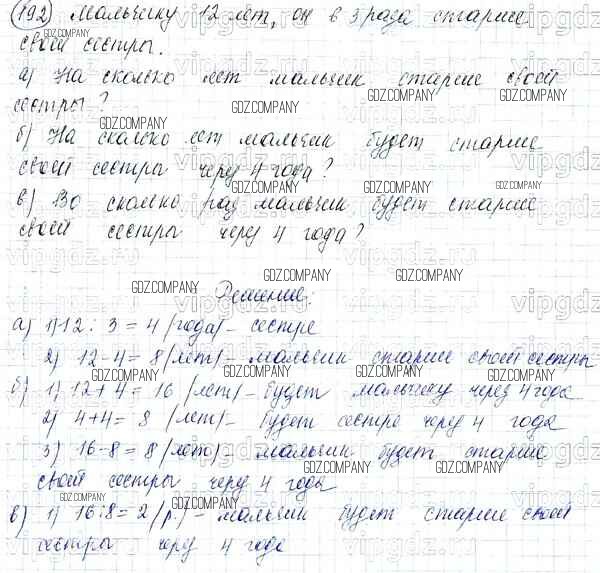 192) Мальчику 12 лет, он в 3 раза старше
своей сестры.
а) На сколько лет мальчик старше своей
сестры?
б) На сколько лет мальчик будет старше
своей сестры через 4 года?
в) Во сколько раз мальчик будет старше
своей сестры через 4 года?
Решение:
а) 1) 12 : 3 = 4 (года) – сестре
2) 12 – 4 = 8 (лет) – мальчик старше своей сестры
б) 1) 12 + 4 = 16 (лет) – будет мальчику через 4 года
2) 4 + 4 = 8 (лет) – будет сестре через 4 года
3) 16 – 8 = 8 (лет) – мальчик будет старше
своей сестры через 4 года
в) 1) 16 : 8 = 2 (р.) – мальчик будет старше своей
сестры через 4 года
GDZ.COMPANY
vipgdz.ru